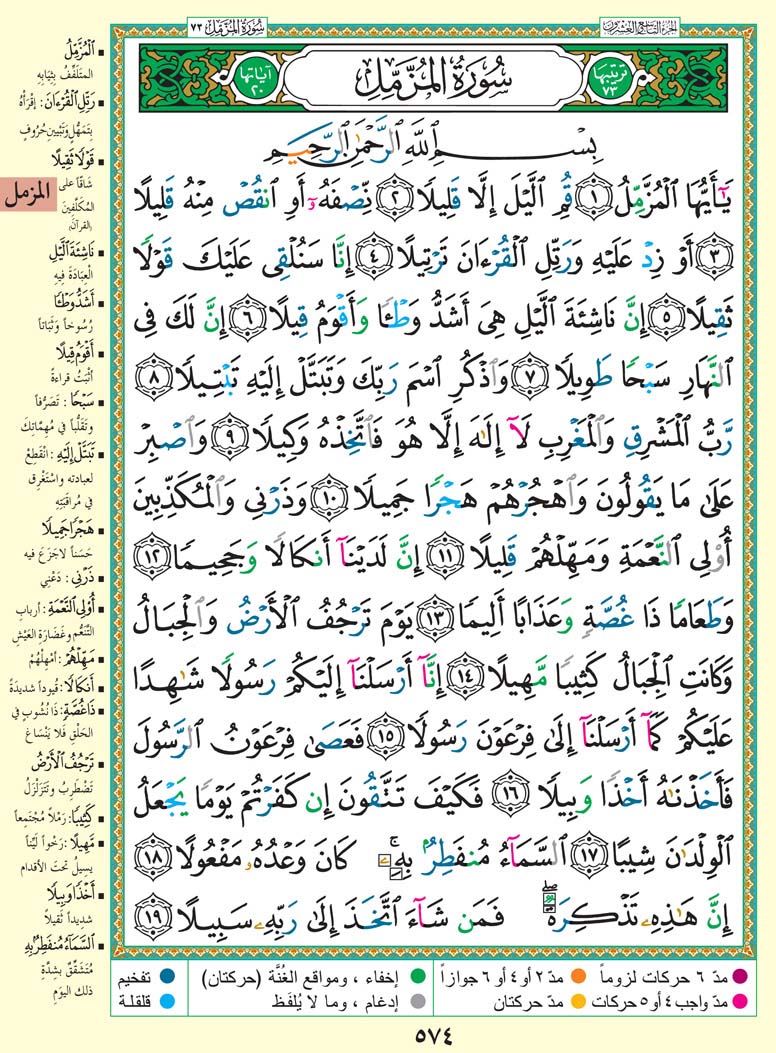 الجزء التاسع والعشرون
سُورَةُ المُزَّمِّل ٧٣
ترتيبها ٧٣
سُورَةُ المُزَّمِّلِ
آياتها ٢٠
بِسْمِ اللَّهِ الرَّحْمَٰنِ الرَّحِيمِ
يَٰٓأَيُّهَا ٱلْمُزَّمِّلُ ۝١ قُمِ ٱلَّيْلَ إِلَّا قَلِيلًا ۝٢ نِّصْفَهُۥٓ أَوِ ٱنقُصْ مِنْهُ قَلِيلًا
۝٣ أَوْ زِدْ عَلَيْهِ وَرَتِّلِ ٱلْقُرْءَانَ تَرْتِيلًا ۝٤ إِنَّا سَنُلْقِى عَلَيْكَ قَوْلًا
ثَقِيلًا ۝٥ إِنَّ نَاشِئَةَ ٱلَّيْلِ هِىَ أَشَدُّ وَطْـًٔا وَأَقْوَمُ قِيلًا ۝٦ إِنَّ لَكَ فِى
ٱلنَّهَارِ سَبْحًا طَوِيلًا ۝٧ وَٱذْكُرِ ٱسْمَ رَبِّكَ وَتَبَتَّلْ إِلَيْهِ تَبْتِيلًا ۝٨
رَّبُّ ٱلْمَشْرِقِ وَٱلْمَغْرِبِ لَآ إِلَٰهَ إِلَّا هُوَ فَٱتَّخِذْهُ وَكِيلًا ۝٩ وَٱصْبِرْ
عَلَىٰ مَا يَقُولُونَ وَٱهْجُرْهُمْ هَجْرًا جَمِيلًا ۝١٠ وَذَرْنِى وَٱلْمُكَذِّبِينَ
أُو۟لِى ٱلنَّعْمَةِ وَمَهِّلْهُمْ قَلِيلًا ۝١١ إِنَّ لَدَيْنَآ أَنكَالًا وَجَحِيمًا ۝١٢
وَطَعَامًا ذَا غُصَّةٍ وَعَذَابًا أَلِيمًا ۝١٣ يَوْمَ تَرْجُفُ ٱلْأَرْضُ وَٱلْجِبَالُ
وَكَانَتِ ٱلْجِبَالُ كَثِيبًا مَّهِيلًا ۝١٤ إِنَّآ أَرْسَلْنَآ إِلَيْكُمْ رَسُولًا شَٰهِدًا
عَلَيْكُمْ كَمَآ أَرْسَلْنَآ إِلَىٰ فِرْعَوْنَ رَسُولًا ۝١٥ فَعَصَىٰ فِرْعَوْنُ ٱلرَّسُولَ
فَأَخَذْنَٰهُ أَخْذًا وَبِيلًا ۝١٦ فَكَيْفَ تَتَّقُونَ إِن كَفَرْتُمْ يَوْمًا يَجْعَلُ
ٱلْوِلْدَٰنَ شِيبًا ۝١٧ ٱلسَّمَآءُ مُنفَطِرٌۢ بِهِۦ ۚ كَانَ وَعْدُهُۥ مَفْعُولًا ۝١٨
إِنَّ هَٰذِهِۦ تَذْكِرَةٌ ۖ فَمَن شَآءَ ٱتَّخَذَ إِلَىٰ رَبِّهِۦ سَبِيلًا ۝١٩
المزمل
▪ الْمُزَّمِّلُ
المتلفّف بثيابِهِ
▪ رَتِّلِ الْقُرْءَانَ : اقرَأْهُ
بتَمَهُّلٍ وتَبْيينِ حُروفٍ
▪ قَوْلًا ثَقِيلًا
شاقّاً على
المُكَلَّفِينَ
(القرآن)
▪ نَاشِئَةَ الَّيْلِ
العِبَادَةَ فيهِ
▪ أَشَدُّ وَطْـًٔا
رُسُوخاً وَثَبَاتاً
▪ أَقْوَمُ قِيلًا
أثْبَتُ قراءةً
▪ سَبْحًا : تَصَرُّفاً
وَتَقَلُّباً في مهمّاتِكَ
▪ تَبَتَّلْ إِلَيْهِ : انْقَطِعْ
لعبادته واسْتَغْرِق
في مُراقَبَتِهِ
▪ هَجْرًا جَمِيلًا
حَسَناً لاجَزَعَ فيه
▪ ذَرْنِي : دَعْنِي
▪ أُوْلِي النَّعْمَةِ : أرباب
التَّنَعُّمِ وغَضَارَةِ العَيْشِ
▪ مَهِّلْهُمْ : أمْهِلْهُمْ
▪ أَنكَالًا : قُيوداً شديدَةً
▪ ذَا غُصَّةٍ : ذا نُشوبٍ في
الحَلْقِ فلا يَنْسَاغ
▪ تَرْجُفُ الْأَرْضُ
تَضْطَرِبُ وَتَتَزَلْزَلُ
▪ كَثِيبًا : رَمْلاً مُجْتَمِعاً
▪ مَّهِيلًا : رَخْواً لَيِّناً
يسيلُ تحتَ الأقدام
▪ أَخْذًا وَبِيلًا
شديداً ثقيلاً
▪ السَّمَاءُ مُنفَطِرٌ بِهِ
مُتَشَقِّقٌ بشدَّةِ
ذلك اليَومِ
● مدّ ٦ حركات لزوماً ● مدّ ٢ أو ٤ أو ٦ جوازاً ● إخفاء ، ومواقع الغُنَّة (حركتان) ● تفخيم
● مدّ واجب ٤ أو ٥ حركات ● مدّ حركتان ● إدغام ، وما لا يُلفَظ ● قلقلة
٥٧٤